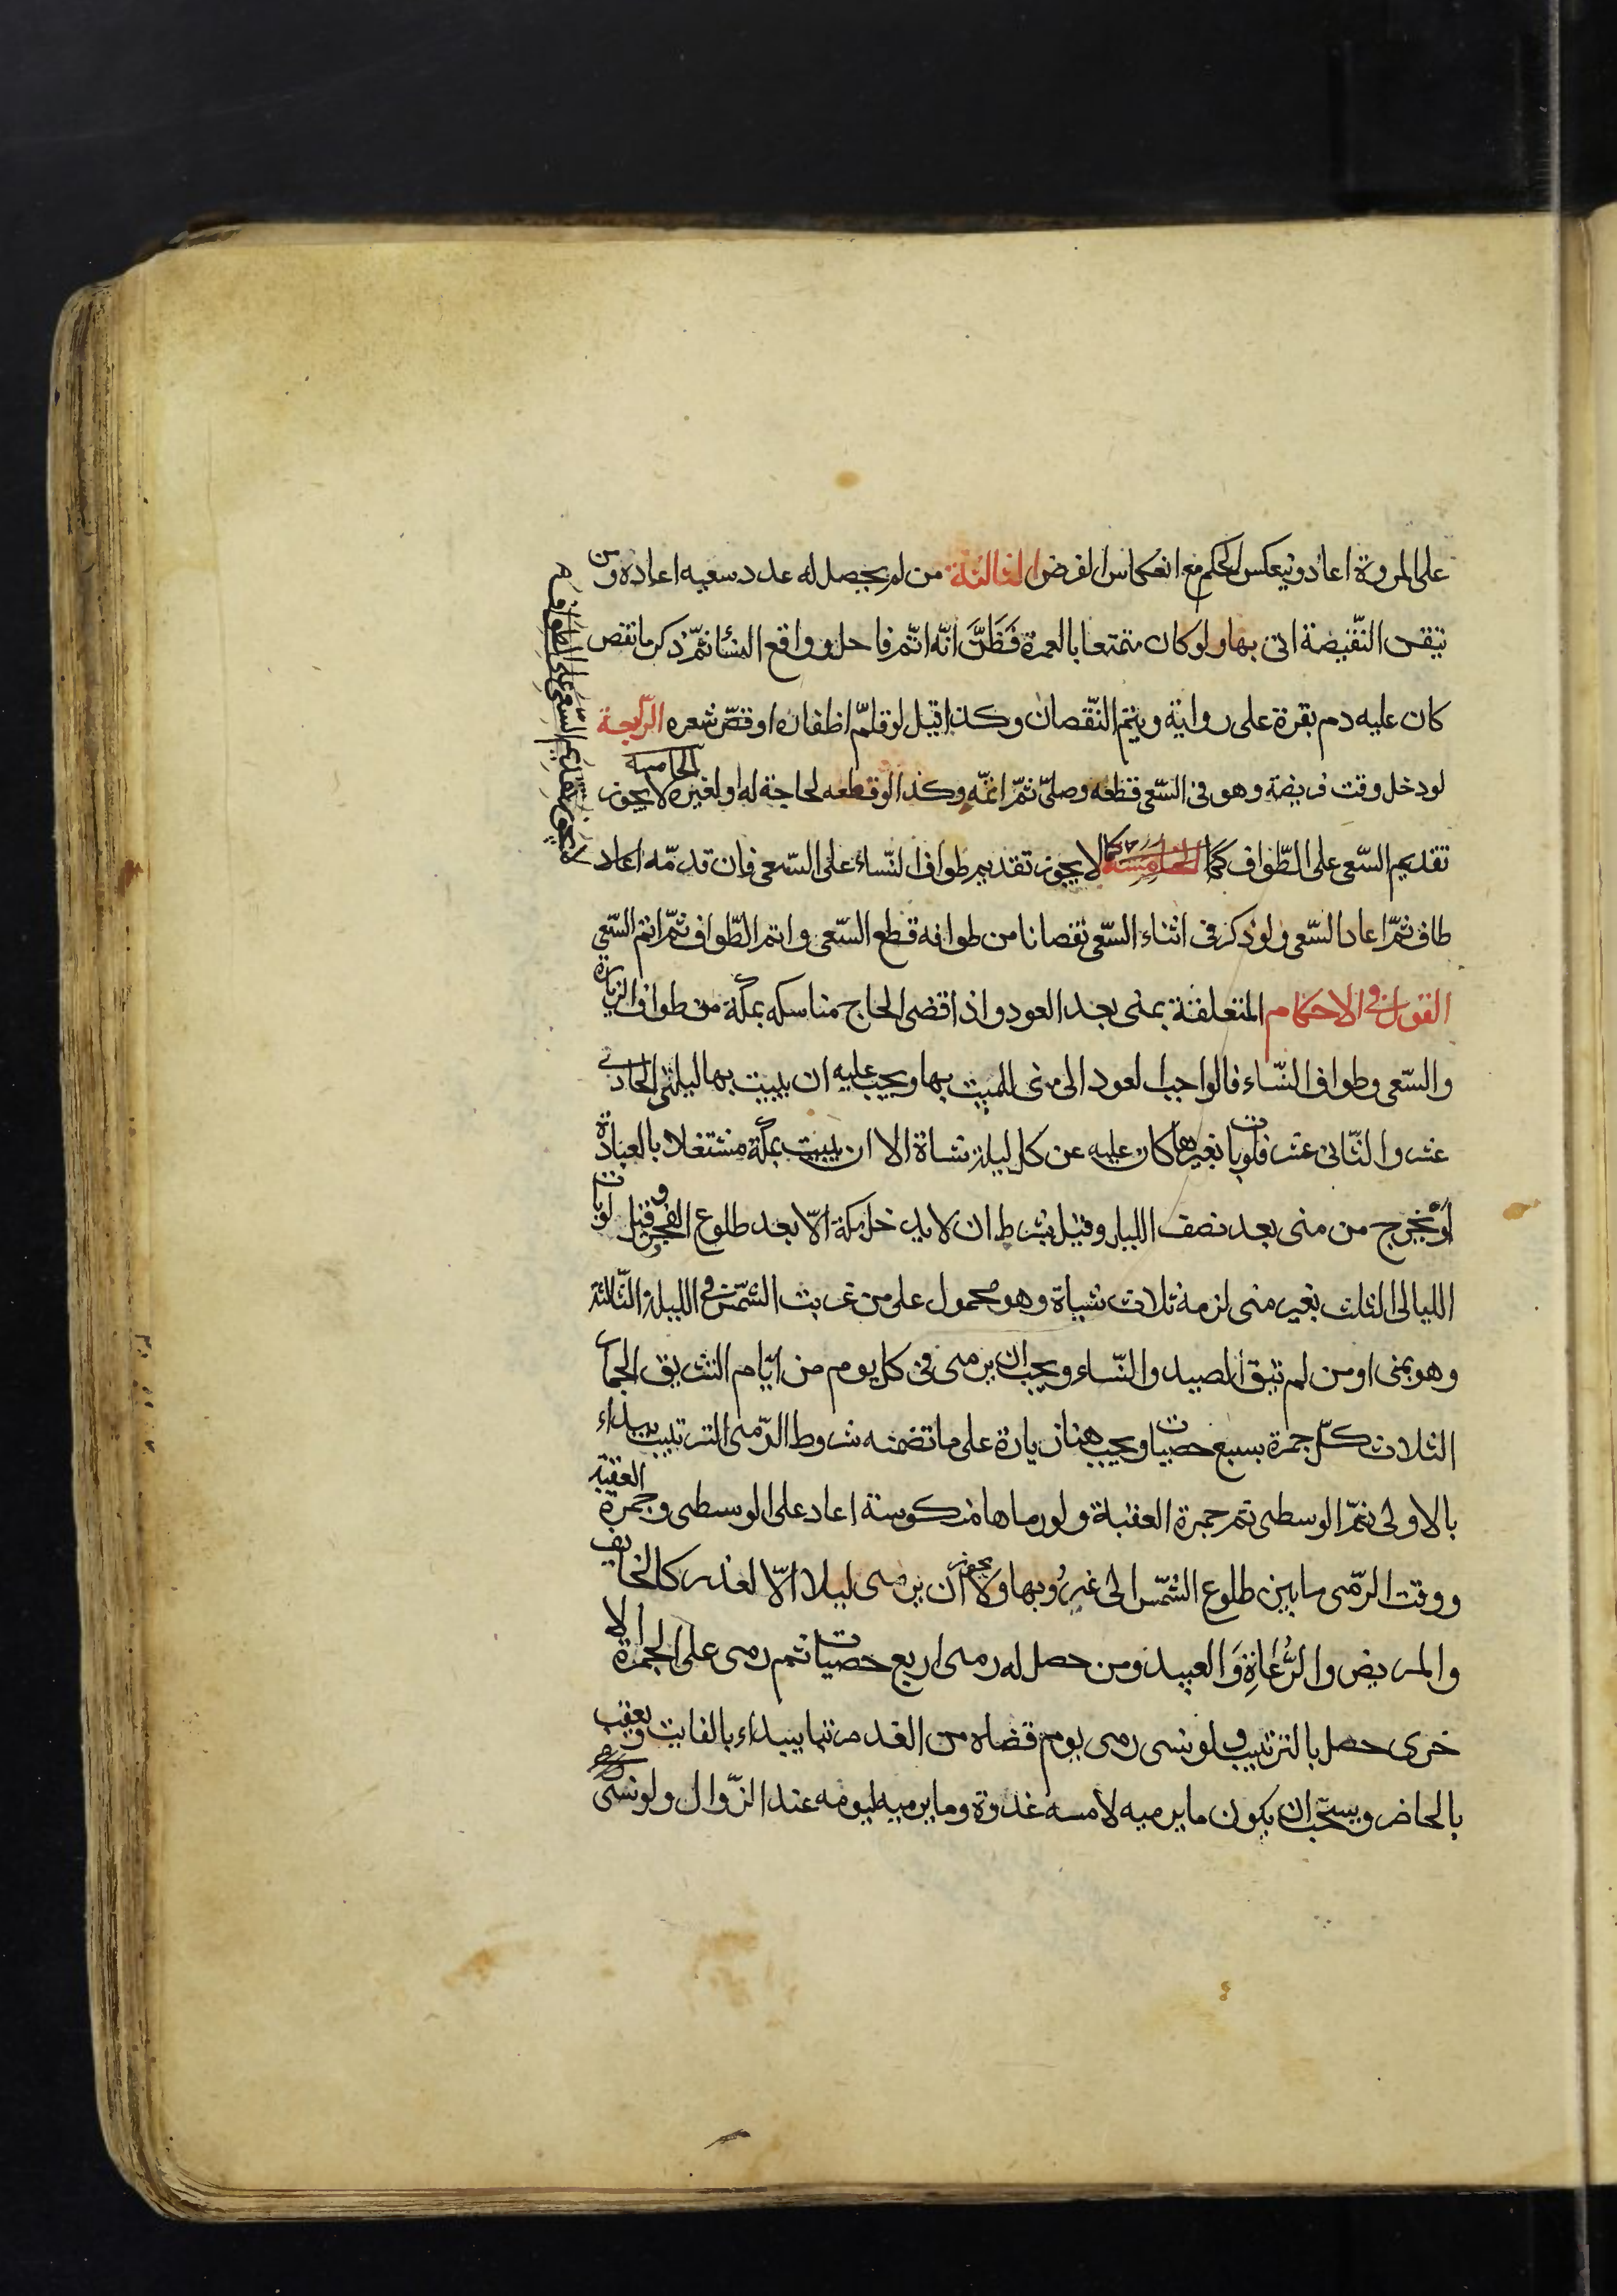 على المروة اعاد وينعكس الحكم مع انعكاس الفرض الثالثة من لم يحصل له عدد سعيه اعاده ومن
تيقن النّقيصة اتى بها ولو كان متمتعا بالعمرة فَظَنَّ انّه اتمّ فاحل وواقع النسٔا ثمّ ذكر ما نقص
كان عليه دم بقرة على رواية ويتم النّقصان وكذا قيل لو قلّم اظفاره او قصّ شعره الرّابعة
لو دخل وقت فريضة وهو فى السّعى قطعه وصلىّ ثمّ اتمّه وكذا لو قطعه لحاجة له او لغيره الخامسه لا يجوز
تقديم السّعى على الطّواف كما الخامسة كما لا يجوز تقديم طواف النّساء على السّعى فان قدمّه اعاد
طاف ثمّ اعاد السّعى ولو ذكر فى اثناء السّعى نقصانا من طوافه قطع السّعى واتم الطّواف ثمّ اتم السّعى
القول فى الاحكام المتعلقة بمنى بعد العود واذا قضى الحاج مناسكه بمكّة من طواف الزيارة
والسّعى وطواف النسّاء فالواجب العود الى منى للمبيت بها ويجب عليه ان يبيت بها ليلتى الحادى
عشر والثّانى عشر فلو بات بغيرها كان عليه عن كل ليلة شاة الا ان يبيت بمكّة مشتغلا بالعبادة
او يخرج من منى بعد نصف الليل وقيل بشرط ان لا يدخل مكة الّا بعد طلوع الفجر وقيل لو بات
الليالى الثلث بغير منى لزمه ثلاث شياة وهو محمول على من غربت الشّمس فى الليلة الثّالثة
وهو بمنى او من لم يتق الصيد والنّساء ويجب ان يرمى فى كل يوم من ايّام التشريق الجمار
الثلاث كلّ جمرة بسبع حصيات ويجب هنا زيادة على ما تضمنه شروط الرّمى الترتيب يبداء
بالاولى ثمّ الوسطى ثم جمرة العقبة ولو رماها منكوسة اعاد على الوسطى وجمرة العقبة
ووقت الرّمى ما بين طلوع الشّمس الى غروبها ولا يجوز ان يرمى ليلا الّا لعذر كالخايف
والمريض والرُّعاة وَالعبيد ومن حصل له رمى اربع حصيات ثم رمى على الجمرة الا
خرى حصل بالترتيب ولو نسى رمى يوم قضاه من الغد مرتبا يبداء بالفايت ويعقب
بالحاضر ويستحّب ان يكون ما يرميه لامسه غدوة وما يرميه ليومه عند الزّوال ولو نسى
لا يجوز تقديم السّعى على الطواف